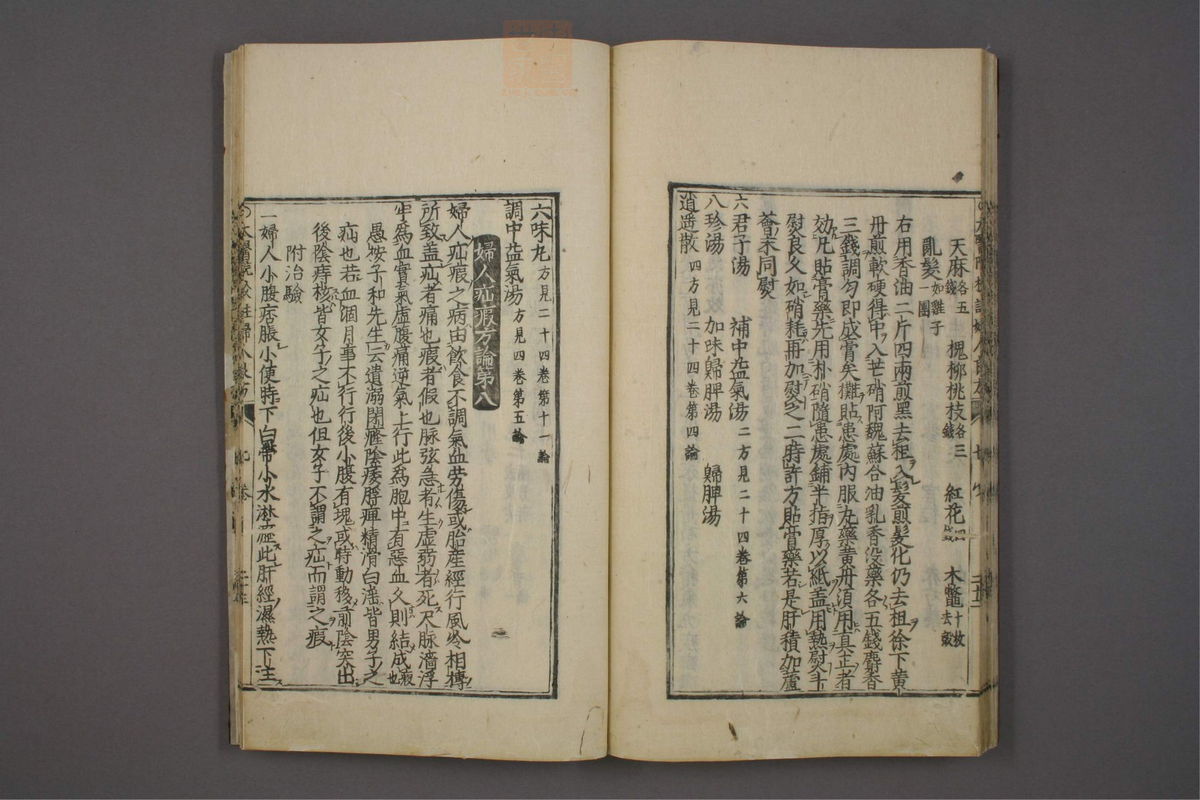 天麻各五錢 槐柳桃枝各三錢 紅花四錢 木鼈十枚去殼
亂髮如雞子一團
右用香油二斤四兩煎黑去柤入髮煎髮化仍去柤徐下黄
丹煎軟硬得中入芒硝阿魏蘇合油乳香没藥各五錢麝香
三錢調勻即成膏矣攤貼患處内服丸藥黄丹須用真正者
効凡貼膏藥先用朴硝隨患處鋪半指厚以紙盖用熱熨斗
熨良久如硝耗再加熨之二時許方貼膏藥若是肝積加蘆
薈末同熨
六君子湯 補中益氣湯二方見二十四卷第六論
八珍湯 加味歸脾湯 歸脾湯
逍遥散四方見二十四卷第四論
六味丸方見二十四卷第十一論
調中益氣湯方見四卷第五論
婦人疝瘕方論第八
婦人疝瘕之病由飲食不調氣血劳傷或胎産經行風冷相搏
所致盖疝者痛也瘕者假也脉弦急者生虚弱者死尺脉濇浮
牢爲血實氣虚腹痛逆氣上行此爲胞中有惡血久則結成瘕也
愚按子和先生云遺溺閉癃陰痿脬痺精滑白淫皆男子之
疝也若血涸月事不行行後小腹有塊或時動移前陰突出
後陰痔核皆女子之疝也但女子不謂之疝而謂之瘕
附治驗
一婦人小腹痞脹小便時下白帶小水淋瀝此肝經濕熱下注